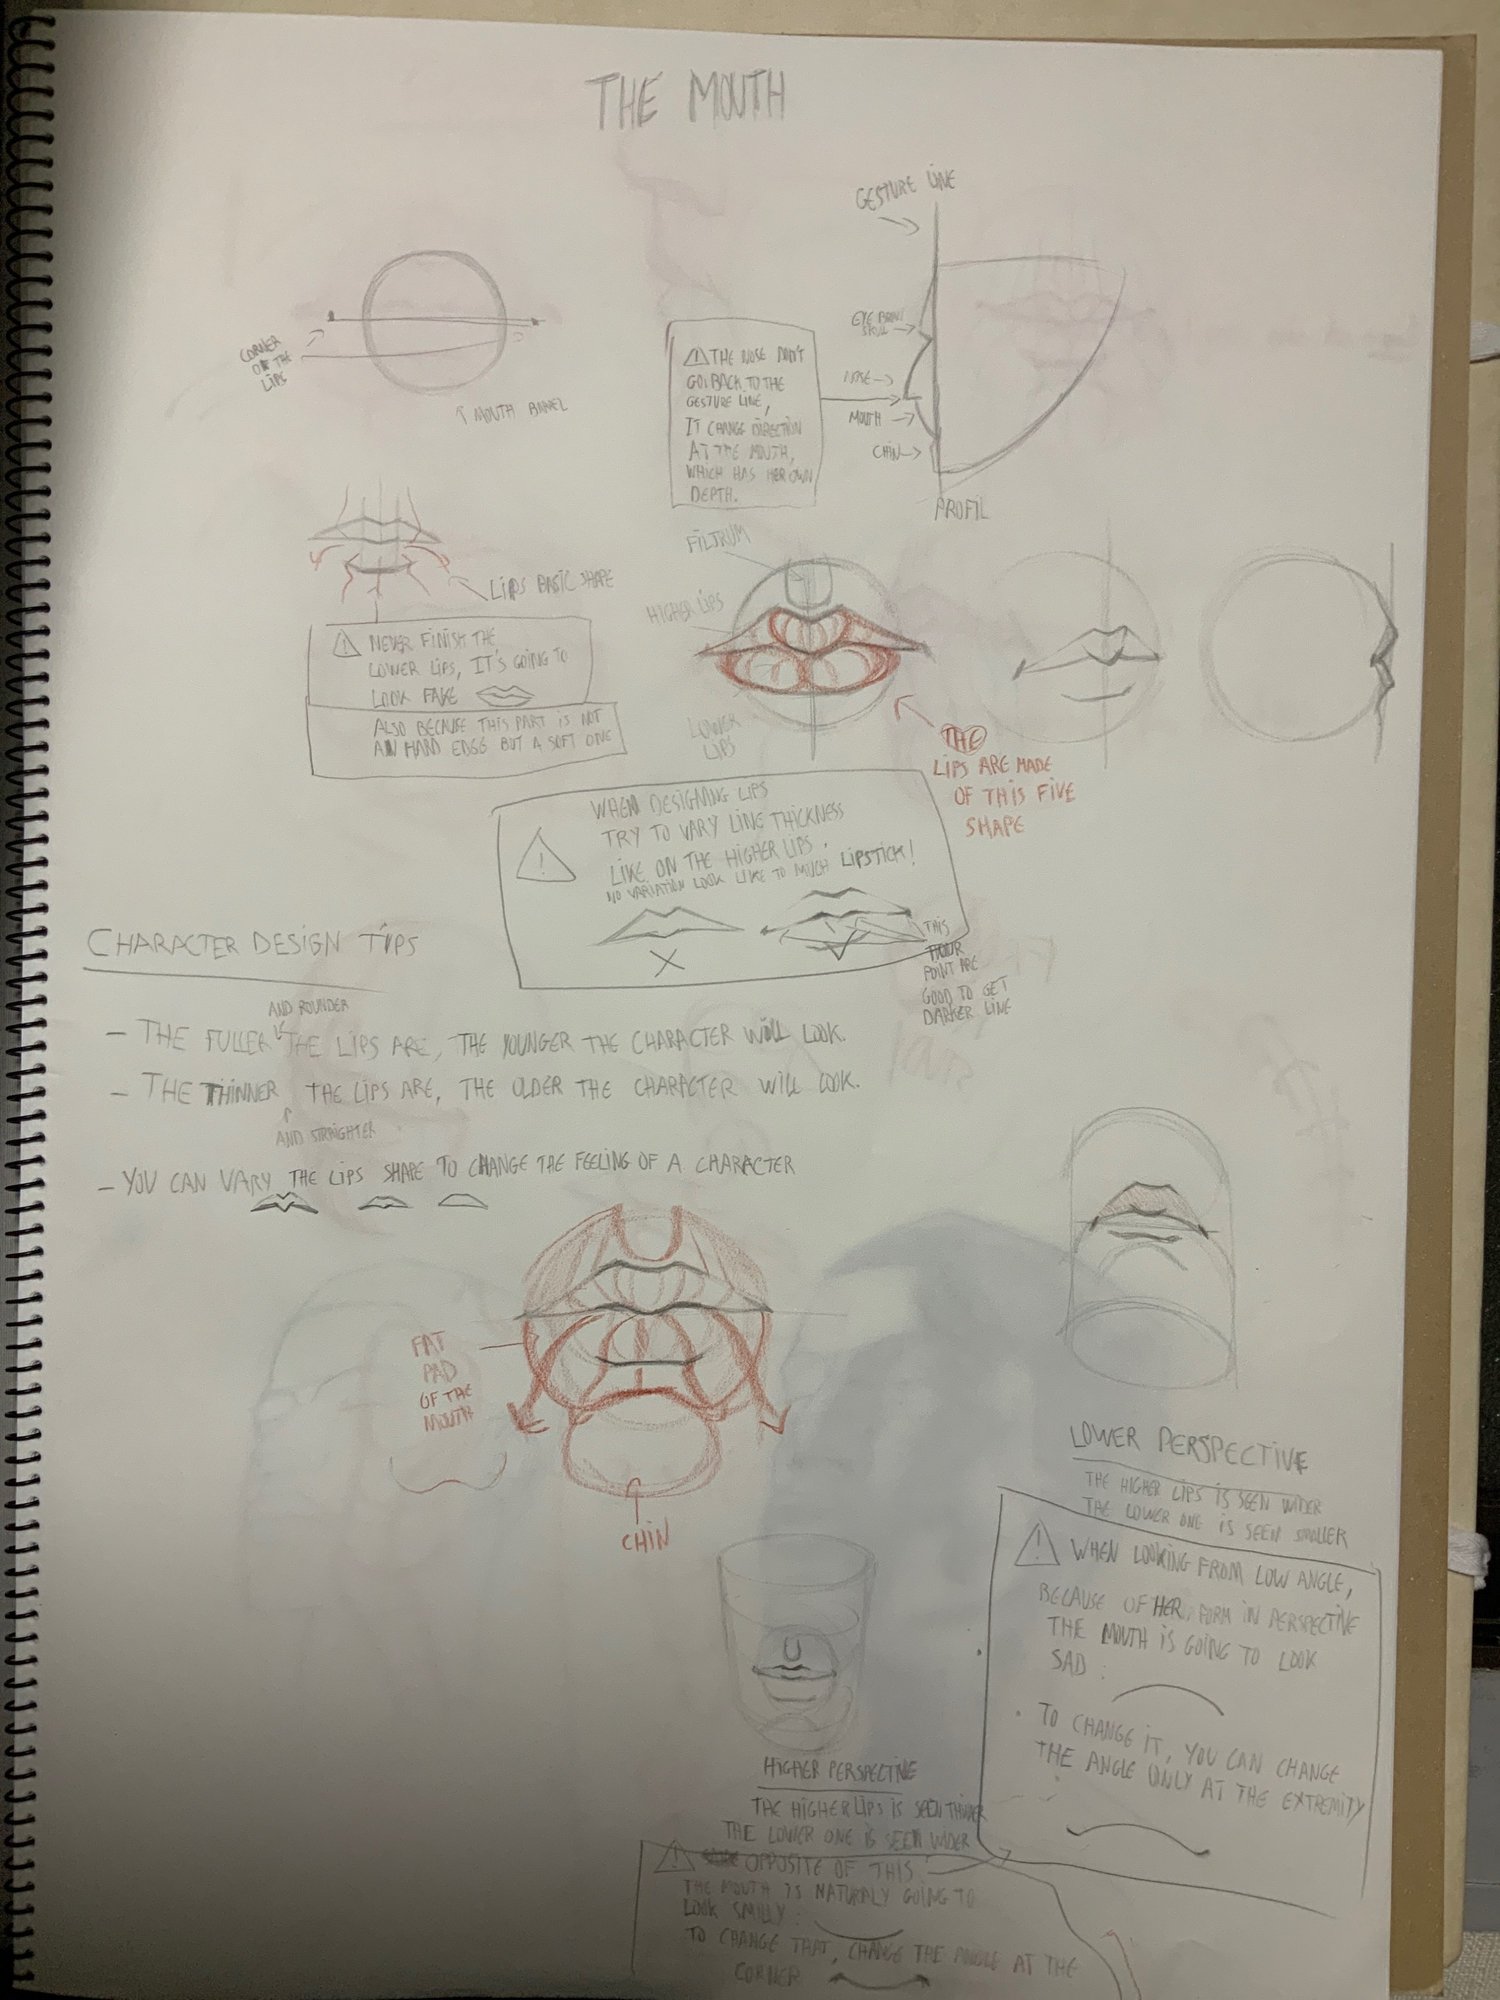 THE MOUTH
GESTURE LINE
CORNER
OF THE
LIPS
↑ MOUTH
EYE BROW
SKULL
NOSE →
MOUTH →
CHIN →
PROFIL
⚠ THE NOSE DON'T
GO BACK TO THE
GESTURE LINE,
IT CHANGE DIRECTION
AT THE MOUTH,
WHICH HAS HER OWN
DEPTH.
LIPS BASIC SHAPE
⚠ NEVER FINISH THE
LOWER LIPS, IT'S GOING TO
LOOK FAKE
ALSO BECAUSE THIS PART IS NOT
AN HARD EDGE BUT A SOFT ONE
FILTRUM
HIGHER LIPS
LOWER
LIPS
THE
LIPS ARE MADE
OF THIS FIVE
SHAPE
WHEN DESIGNING LIPS
TRY TO VARY LINE THICKNESS
LIKE ON THE HIGHER LIPS.
NO VARIATION LOOK LIKE TO MUCH LIPSTICK!
THIS
FOUR
POINT ARE
GOOD TO GET
DARKER LINE
CHARACTER DESIGN TIPS
AND ROUNDER
- THE FULLER THE LIPS ARE, THE YOUNGER THE CHARACTER WILL LOOK.
- THE THINNER THE LIPS ARE, THE OLDER THE CHARACTER WILL LOOK.
AND STRAIGHTER
- YOU CAN VARY THE LIPS SHAPE TO CHANGE THE FEELING OF A CHARACTER
FAT
PAD
OF THE
MOUTH
CHIN
LOWER PERSPECTIVE
THE HIGHER LIPS IS SEEN WIDER
THE LOWER ONE IS SEEN SMALLER
⚠ WHEN LOOKING FROM LOW ANGLE,
BECAUSE OF HER FORM IN PERSPECTIVE
THE MOUTH IS GOING TO LOOK
SAD :
. TO CHANGE IT, YOU CAN CHANGE
THE ANGLE ONLY AT THE EXTREMITY
HIGHER PERSPECTIVE
THE HIGHER LIPS IS SEEN THINNER
THE LOWER ONE IS SEEN WIDER
⚠ OPPOSITE OF THIS :
THE MOUTH IS NATURALY GOING TO
LOOK SMILY :
TO CHANGE THAT, CHANGE THE ANGLE AT THE
CORNER